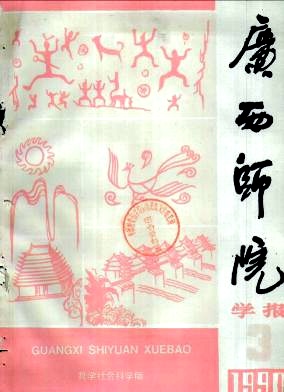 廣西師院
学报
3
1990
GUANGXI SHIYUAN XUEBAO
哲学社会科学版